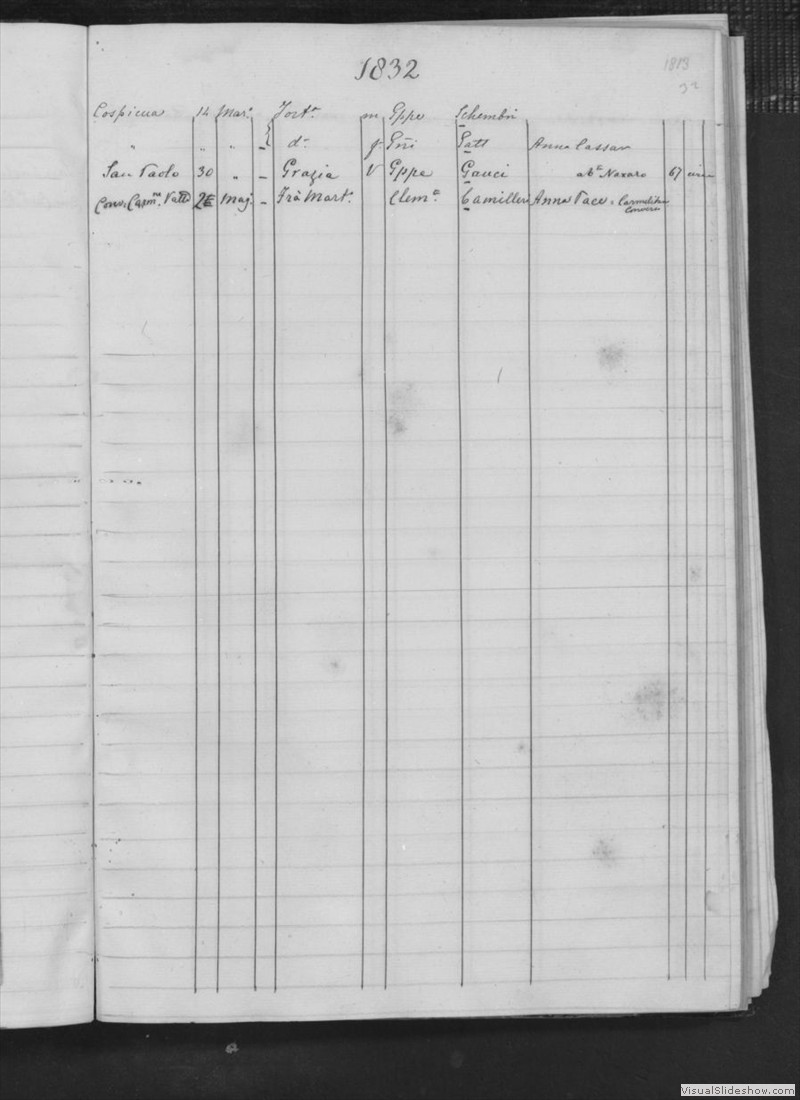 1832
1813
Cospicua 14 Mar. Fort.a m Gppe Schembri
" " " - d.a f Gni Patt Anna Cassar
San Paolo 30 " - Grazia V Gppe Gauci ab.e Naxaro 67
Conv. Carm.ne Vatta Maj. - Frà Mart. Clem.e Camilleri Anna Pace.
VisualSlideshow.com